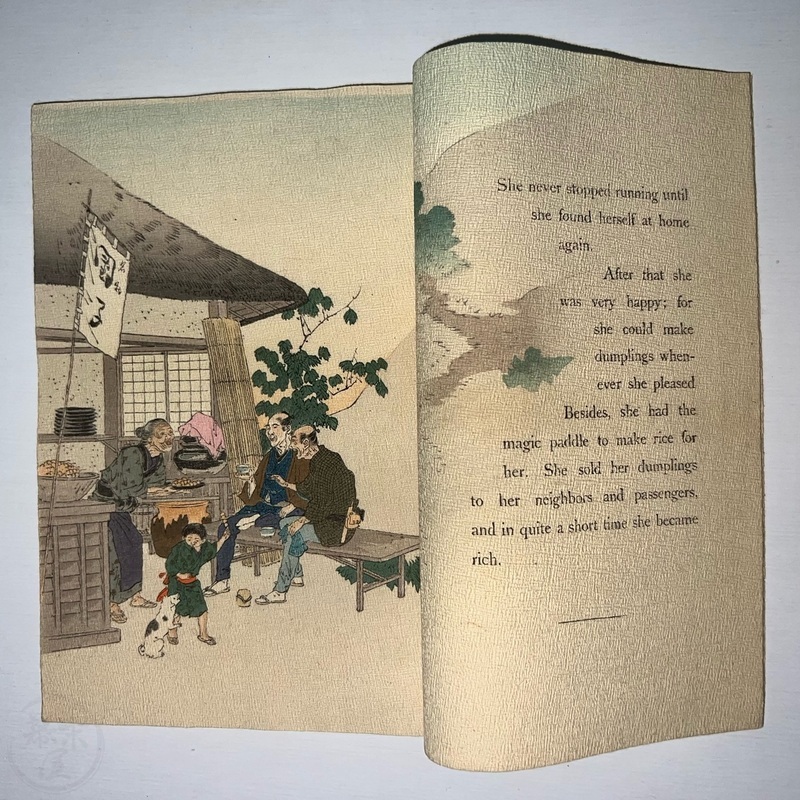 團子
She never stopped running until
she found herself at home
again.
After that she
was very happy; for
she could make
dumplings when-
ever she pleased
Besides, she had the
magic paddle to make rice for
her. She sold her dumplings
to her neighbors and passengers,
and in quite a short time she became
rich.